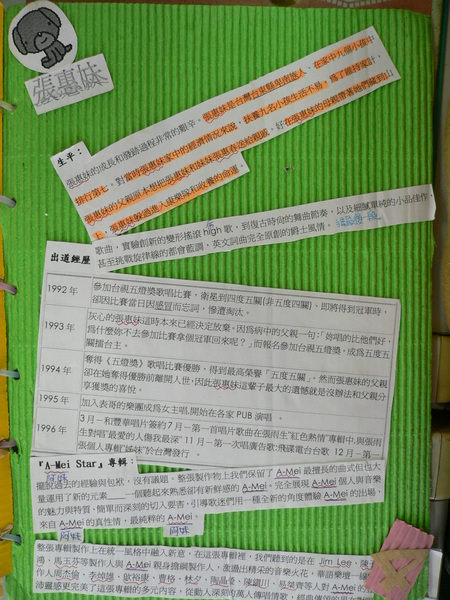 張惠妹
生平：
張惠妹的成長和發跡過程非常的艱辛。張惠妹是台灣台東縣卑南族人，在家中九個小孩中
排行第七。對當時張惠妹家中的經濟情況來說，扶養九名小孩生活不易，為了維持家計，
張惠妹的父親原本想把張惠妹和妹妹張惠春送給親戚，好在張惠妹的母親帶著她們躲到山
上，張惠妹躲過進入
歌曲，實驗創新的變形搖滾 high 歌，到復古時尚的舞曲節奏，以及細膩單純的小品佳作，
甚至挑戰旋律線的都會藍調，英文詞曲完全原創的爵士風情。
出道經歷
1992 年
參加台視五燈獎歌唱比賽，衛冕到四度五關(非五度四關)、即將得到冠軍時，
卻因比賽當日因感冒而忘詞，慘遭淘汰。
1993 年
灰心的張惠妹這時本來已經決定放棄。因為病中的父親一句:「妳唱的比他們好，
為什麼妳不去參加比賽拿個冠軍回來呢？」而報名參加台視五燈獎，成為五度五
關擂台主。
1994 年
奪得《五燈獎》歌唱比賽優勝，得到最高榮譽「五度五關」，然而張惠妹的父親
卻在她奪得優勝前離開人世，因此張惠妹這輩子最大的遺憾就是沒辦法和父親分
享獲獎的喜悅。
1995 年
加入表哥的樂團成為女主唱，開始在各家 PUB 演唱 。
1996 年
3 月－和豐華唱片簽約 7 月－第一首唱片歌曲在張雨生"紅色熱情"專輯中，與張雨
生對唱"最愛的人傷我最深" 11 月－第一次唱廣告歌:飛碟電台台歌 12 月－第一
張個人專輯"姊妹"於台灣發行 。
『A-Mei Star』專輯：
阿妹
擺脫過去的經驗與包袱，沒有議題，整張製作物上我們保留了 A-Mei 最擅長的曲式但也大
量運用了新的元素 一個聽起來熟悉卻有新鮮感的 A-Mei。完全展現 A-Mei 個人與音樂
的魅力與特質。簡單而深刻的切入要害，引導歌迷們用一種全新的角度體驗 A-Mei 的出場，
來自 A-Mei 的真性情，最純粹的 A-Mei。
阿妹
阿妹
整張專輯製作上在統一風格中融入新意，在這張專輯裡，我們聽到的是在 Jim Lee，陳子
鴻，馬玉芬等製作人與 A-Mei 親身擔綱製作人，激盪出精采的音樂火花，華語樂壇一
作人周杰倫，李焯雄，歐裕康，曹格，林夕，陶晶瑩，陳鎮川，易桀齊等人對 A-Mei
陸靈感更完美了這張專輯的多元內容，從動人深刻的